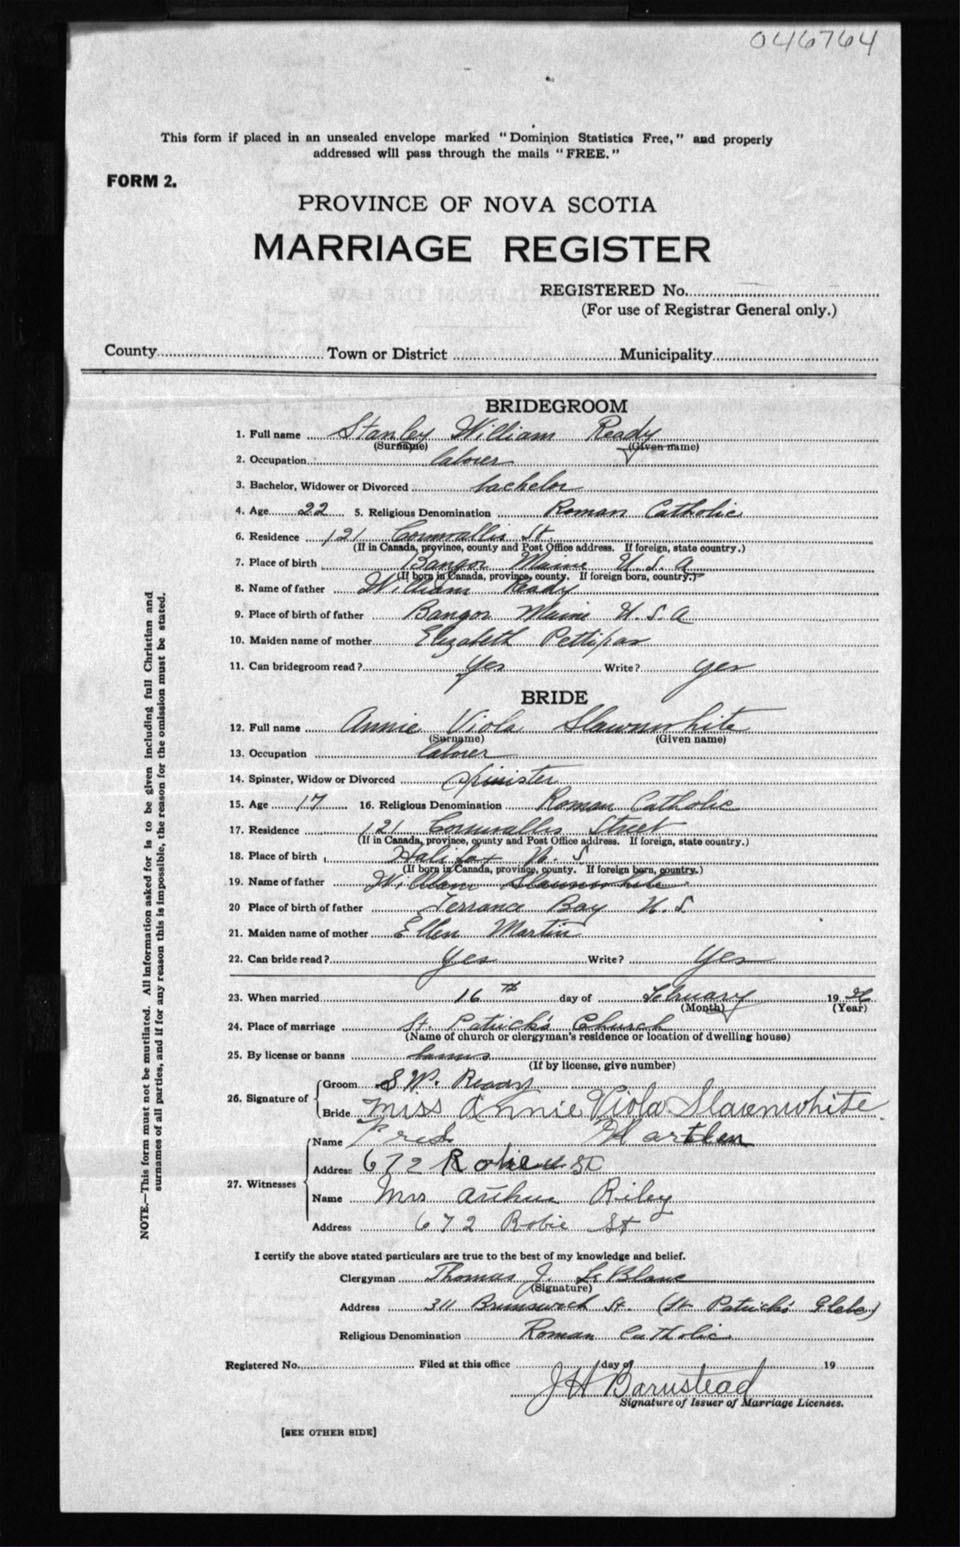 046764
This form if placed in an unsealed envelope marked "Dominion Statistics Free," and properly
addressed will pass through the mails "FREE."
FORM 2.
PROVINCE OF NOVA SCOTIA
MARRIAGE REGISTER
REGISTERED No.
(For use of Registrar General only.)
County Town or District Municipality
BRIDEGROOM
1. Full name Stanley William Ready
(Surname) (Given name)
2. Occupation laborer
3. Bachelor, Widower or Divorced bachelor
4. Age 22 5. Religious Denomination Roman Catholic
6. Residence 121 Cornwallis St.
(If in Canada, province, county and Post Office address. If foreign, state country.)
7. Place of birth Bangor Maine U.S.A
(If born in Canada, province, county. If foreign born, country.)
8. Name of father William Ready
9. Place of birth of father Bangor Maine U.S.A
10. Maiden name of mother Elizabeth Pettipas
11. Can bridegroom read? Yes Write? yes
BRIDE
12. Full name Annie Viola Slawnwhite
(Surname) (Given name)
13. Occupation laborer
14. Spinster, Widow or Divorced Spinister
15. Age 17 16. Religious Denomination Roman Catholic
17. Residence 121 Cornwallis Street
(If in Canada, province, county and Post Office address. If foreign, state country.)
18. Place of birth Halifax N.S
(If born in Canada, province, county. If foreign born, country.)
19. Name of father William Slawnwhite
20 Place of birth of father Terrance Bay N.S.
21. Maiden name of mother Ellen Martin
22. Can bride read? Yes Write? Yes
23. When married 16th day of February 19
(Month) (Year)
24. Place of marriage St. Patrick's Church
(Name of church or clergyman's residence or location of dwelling house)
25. By license or banns banns
(If by license, give number)
26. Signature of
Groom S.W. Ready
Bride Miss Annie Viola Slawnwhite
27. Witnesses
Name Fred Hartlen
Address 672 Robie St
Name Mrs Arthur Riley
Address 672 Robie St
I certify the above stated particulars are true to the best of my knowledge and belief.
Clergyman Thomas J. LeBlanc
(Signature)
Address 311 Brunswick St. (St. Patrick's Glebe)
Religious Denomination Roman Catholic
Registered No. Filed at this office day of 19
JH Barnstead
Signature of Issuer of Marriage Licenses.
[SEE OTHER SIDE]
NOTE.—This form must not be mutilated. All information asked for is to be given including full Christian and
surnames of all parties, and if for any reason this is impossible, the reason for the omission must be stated.